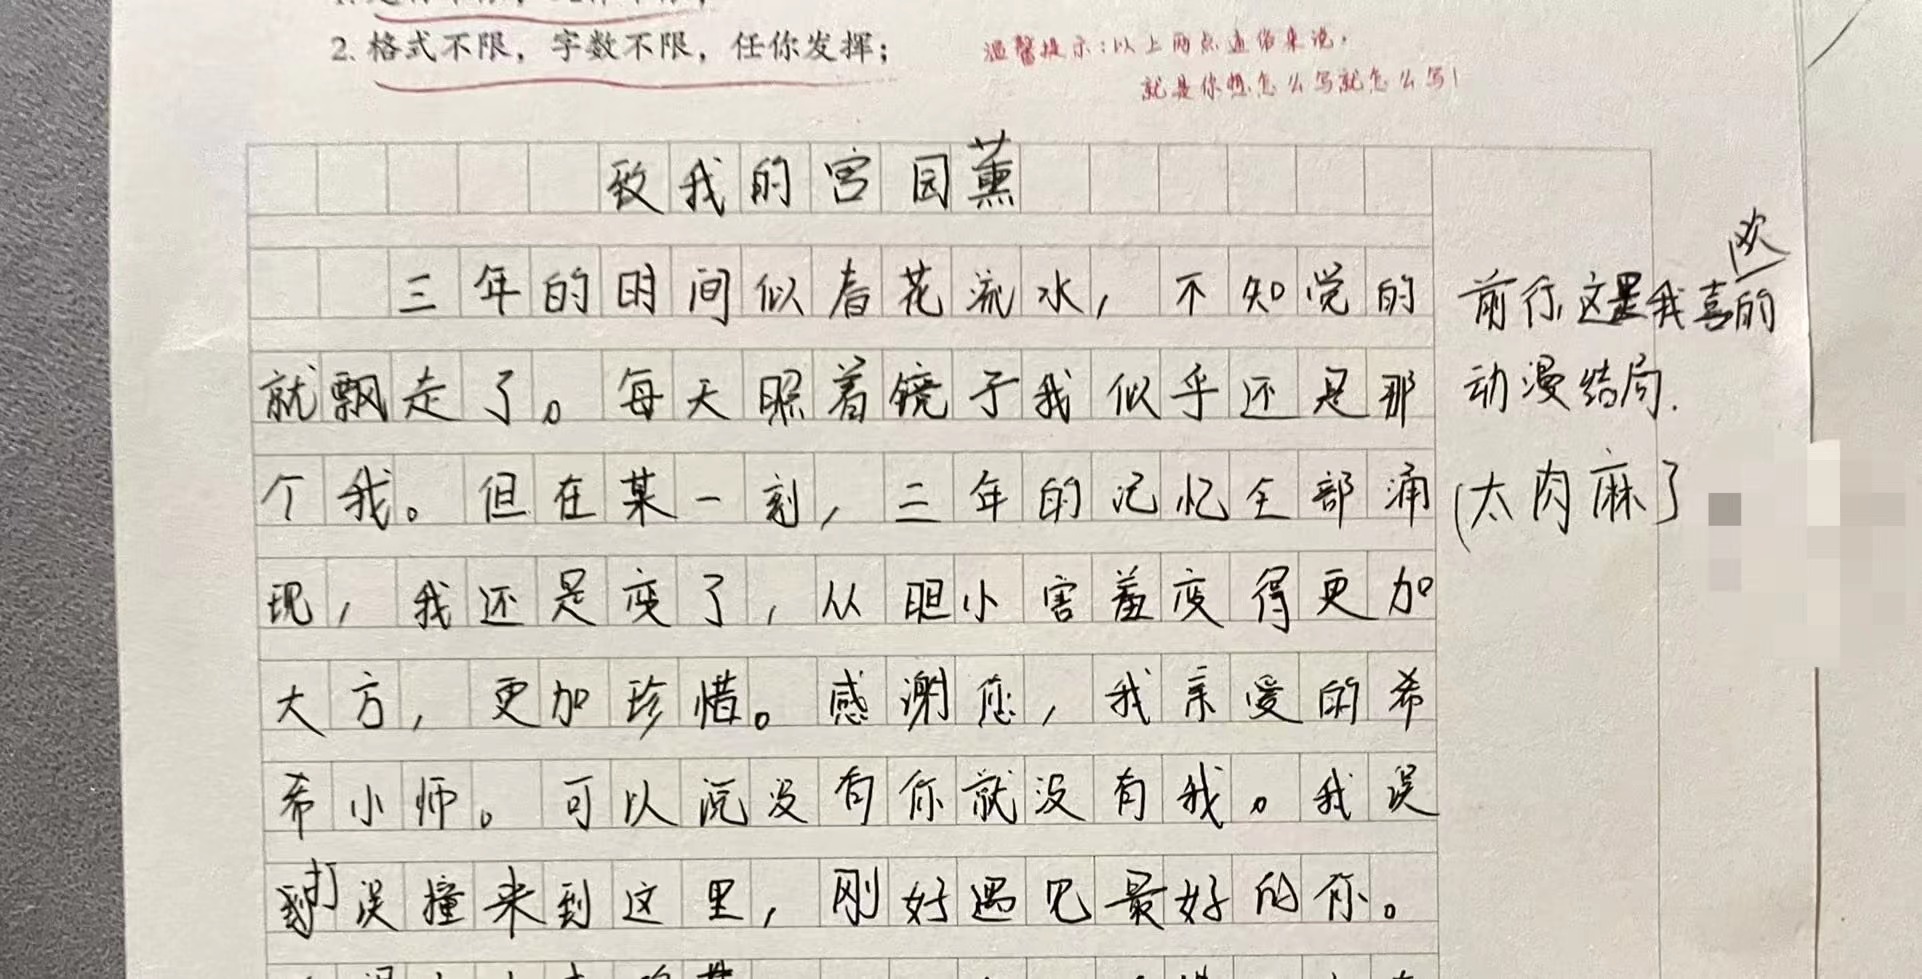 2. 格式不限，字数不限，任你发挥；
温馨提示：以上两点通俗来说，
就是你想怎么写就怎么写！
致我的宫园薰
三年的时间似春花流水，不知觉的
就飘走了。每天照着镜子我似乎还是那
个我。但在某一刻，三年的记忆全部涌
现，我还是变了，从胆小害羞变得更加
大方，更加珍惜。感谢您，我亲爱的希
希小师。可以说没有你就没有我。我误
打误撞来到这里，刚好遇见最好的你。
前行，这是我喜欢的
动漫结局.
(太肉麻了